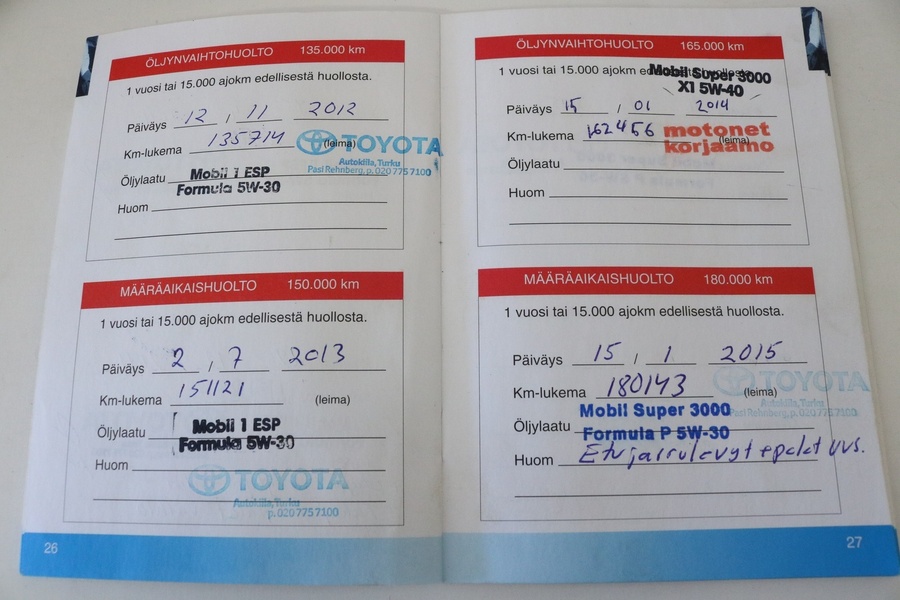 ÖLJYNVAIHTOHUOLTO 135.000 km
1 vuosi tai 15.000 ajokm edellisestä huollosta.
Päiväys 12 , 11 2012
Km-lukema 135714 (leima) TOYOTA
Autokiila, Turku
Pasi Rehnberg, p. 020 775 7100
Öljylaatu Mobil 1 ESP
Formula 5W-30
Huom
MÄÄRÄAIKAISHUOLTO 150.000 km
1 vuosi tai 15.000 ajokm edellisestä huollosta.
Päiväys 2 , 7 2013
Km-lukema 151121 (leima)
Öljylaatu Mobil 1 ESP
Formula 5W-30
Huom
TOYOTA
Autokiila, Turku
p. 020 775 7100
26
ÖLJYNVAIHTOHUOLTO 165.000 km
1 vuosi tai 15.000 ajokm edellisestä huollosta.
Mobil Super 3000
X1 5W-40
Päiväys 15 , 01 2014
Km-lukema 162456 (leima)
motonet
korjaamo
Öljylaatu
Huom
MÄÄRÄAIKAISHUOLTO 180.000 km
1 vuosi tai 15.000 ajokm edellisestä huollosta.
Päiväys 15 / 1 2015
Km-lukema 180143 (leima) TOYOTA
Autokiila, Turku
Pasi Rehnberg, p. 020 775 7100
Öljylaatu Mobil Super 3000
Formula P 5W-30
Huom Etujarrulevyt+palat uus.
27